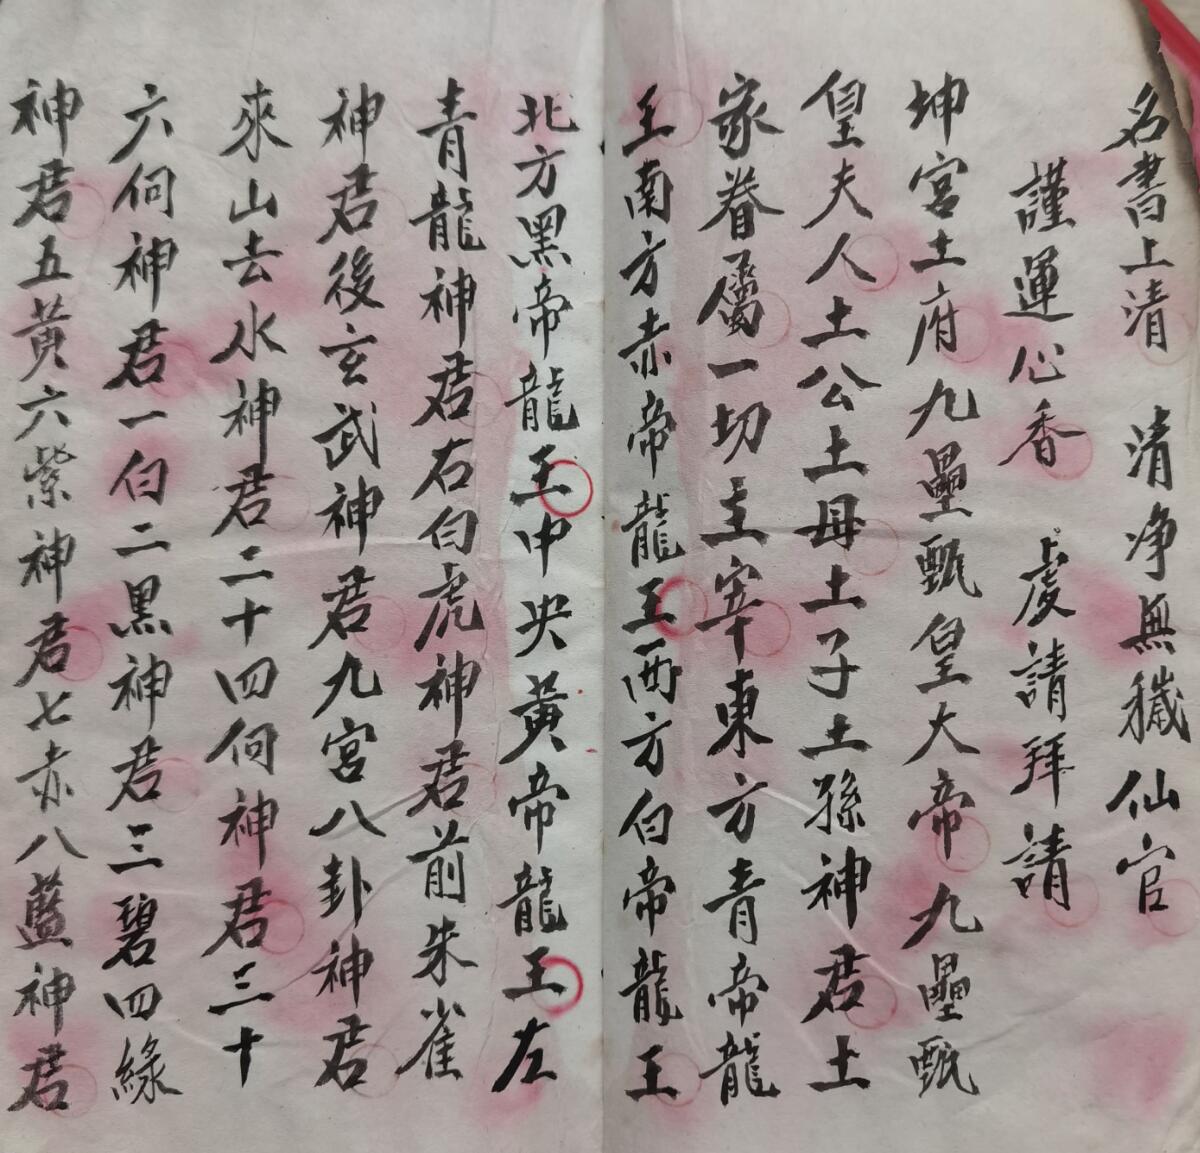 名書上清　清净無穢仙官
謹運心香　虔請拜請
坤宮土府九壘甄皇大帝九壘甄
皇夫人土公土母土子土孫神君土
家眷屬一切主宰東方青帝龍
王南方赤帝龍王西方白帝龍王
北方黑帝龍王中央黃帝龍王左
青龍神君右白虎神君前朱雀
神君後玄武神君九宮八卦神君
來山去水神君二十四向神君三十
六向神君一白二黑神君三碧四緣
神君五黃六紫神君七赤八藍神君